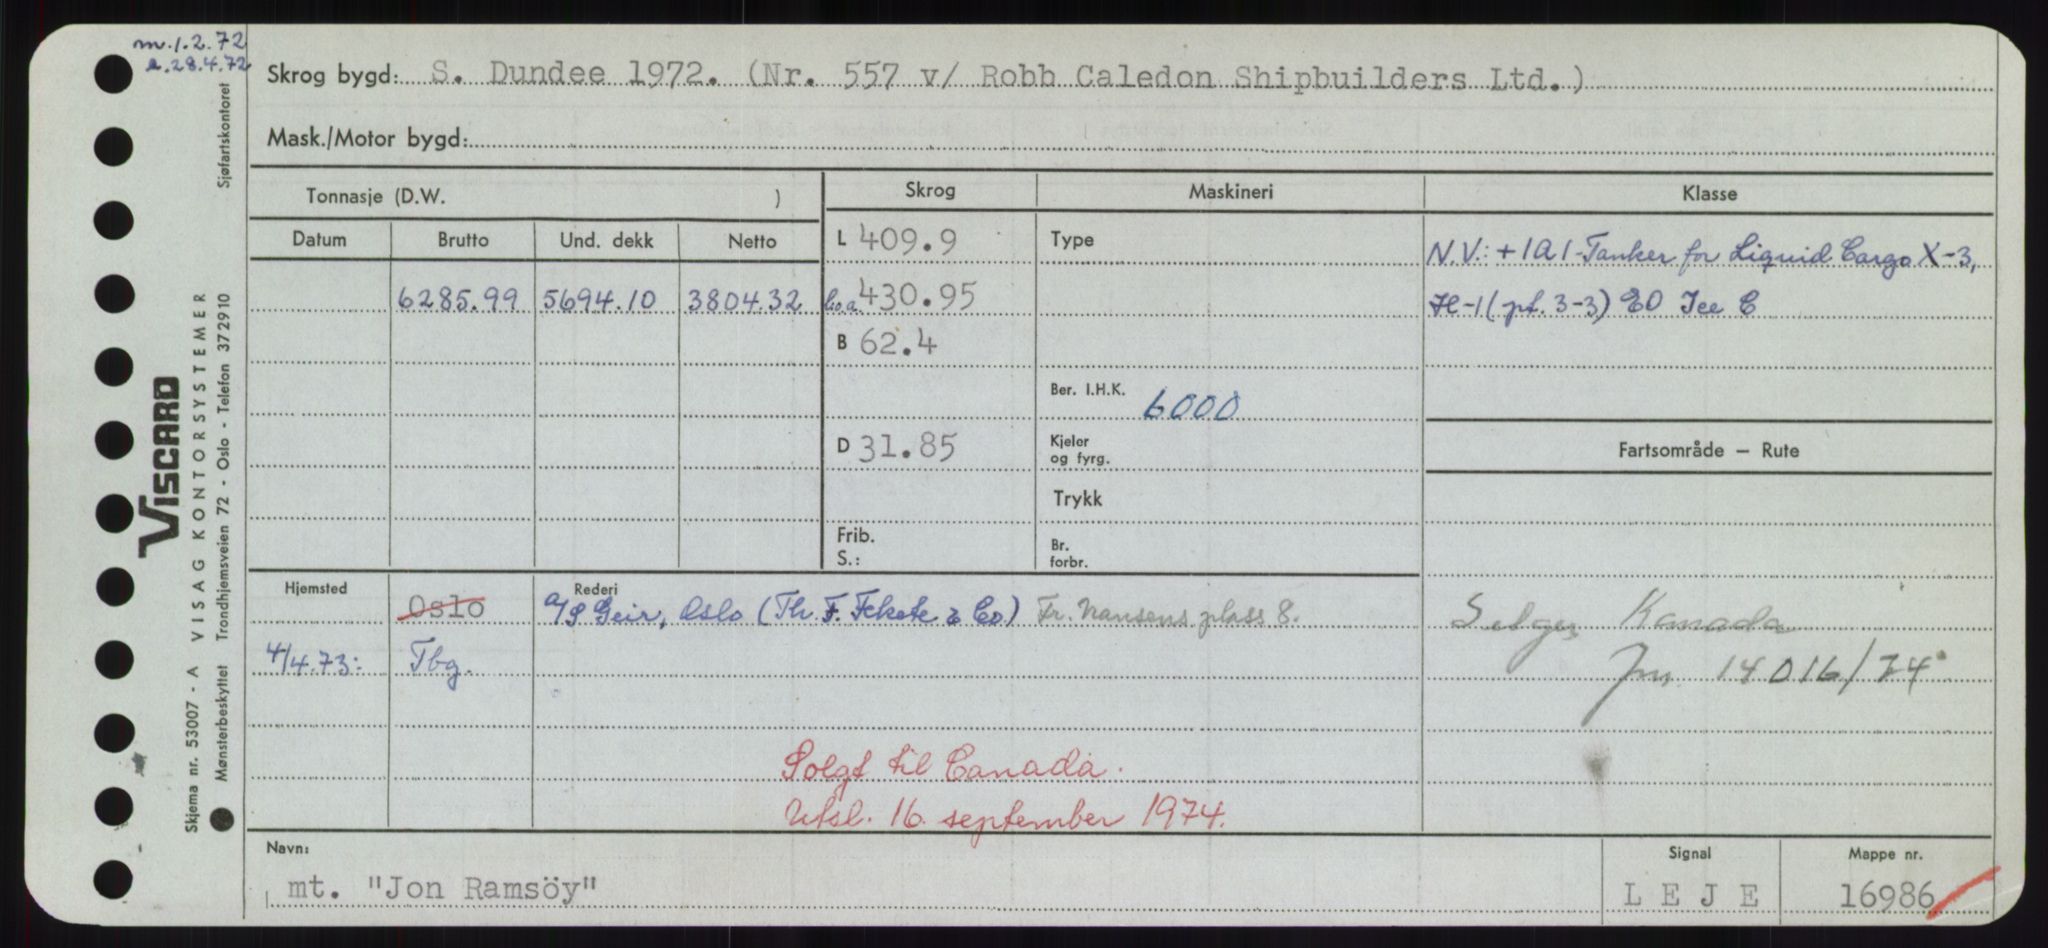 m. 1.2.72
a. 28.4.72
Skrog bygd: S. Dundee 1972. (Nr. 557 v/ Robb Caledon Shipbuilders Ltd.)
Mask./Motor bygd:
Tonnasje (D.W. )
Skrog Maskineri Klasse
Datum Brutto Und. dekk Netto
L 409.9 Type N.V.: +1A1-Tanker for Liquid Cargo X-3,
6285.99 5694.10 3804.32 l.o.a. 430.95 H-1 (pt. 3-3) EO Ice C
B 62.4
Ber. I.H.K. 6000
D 31.85 Kjeler
og fyrg.
Fartsområde — Rute
Trykk
Frib.
S.:
Br.
forbr.
Hjemsted Rederi
Oslo A/S Geir, Oslo (Th. F. Fekete & Co.) Fr. Nansens plass 8.
Selges Kanada
4/4.73: Tbg. Jnr. 14016/74
Solgt til Canada.
Utsl. 16. september 1974.
Navn: Signal Mappe nr.
mt. "Jon Ramsöy" L E J E 16986
VISCARD
Skjema nr. 53007 - A VISAG KONTORSYSTEMER
Mønsterbeskyttet Trondhjemsveien 72 - Oslo - Telefon 372910 Sjøfartskontoret